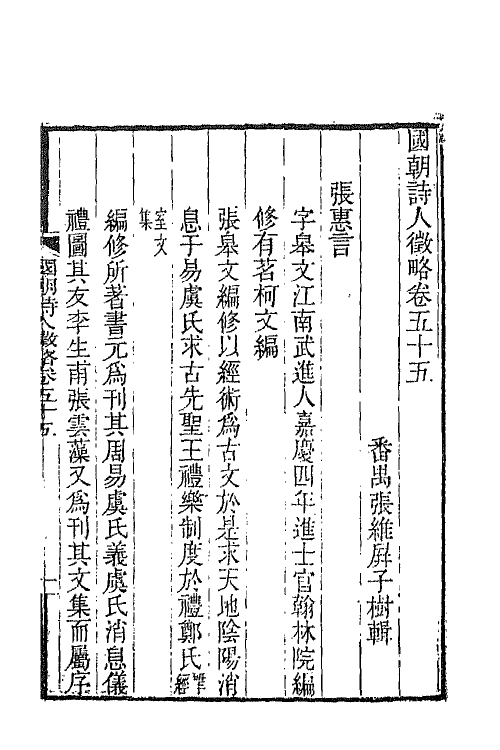 國朝詩人徵略卷五十五
番禺張維屏子樹輯
張惠言
字皋文江南武進人嘉慶四年進士官翰林院編
修有茗柯文編
張皋文編修以經術爲古文於是求天地陰陽消
息于易虞氏求古先聖王禮樂制度於禮鄭氏揅經
室文集
編修所著書元爲刊其周易虞氏義虞氏消息儀
禮圖其友李生甫張雲藻又爲刊其文集而屬序
國朝詩人徵略卷五十五
一